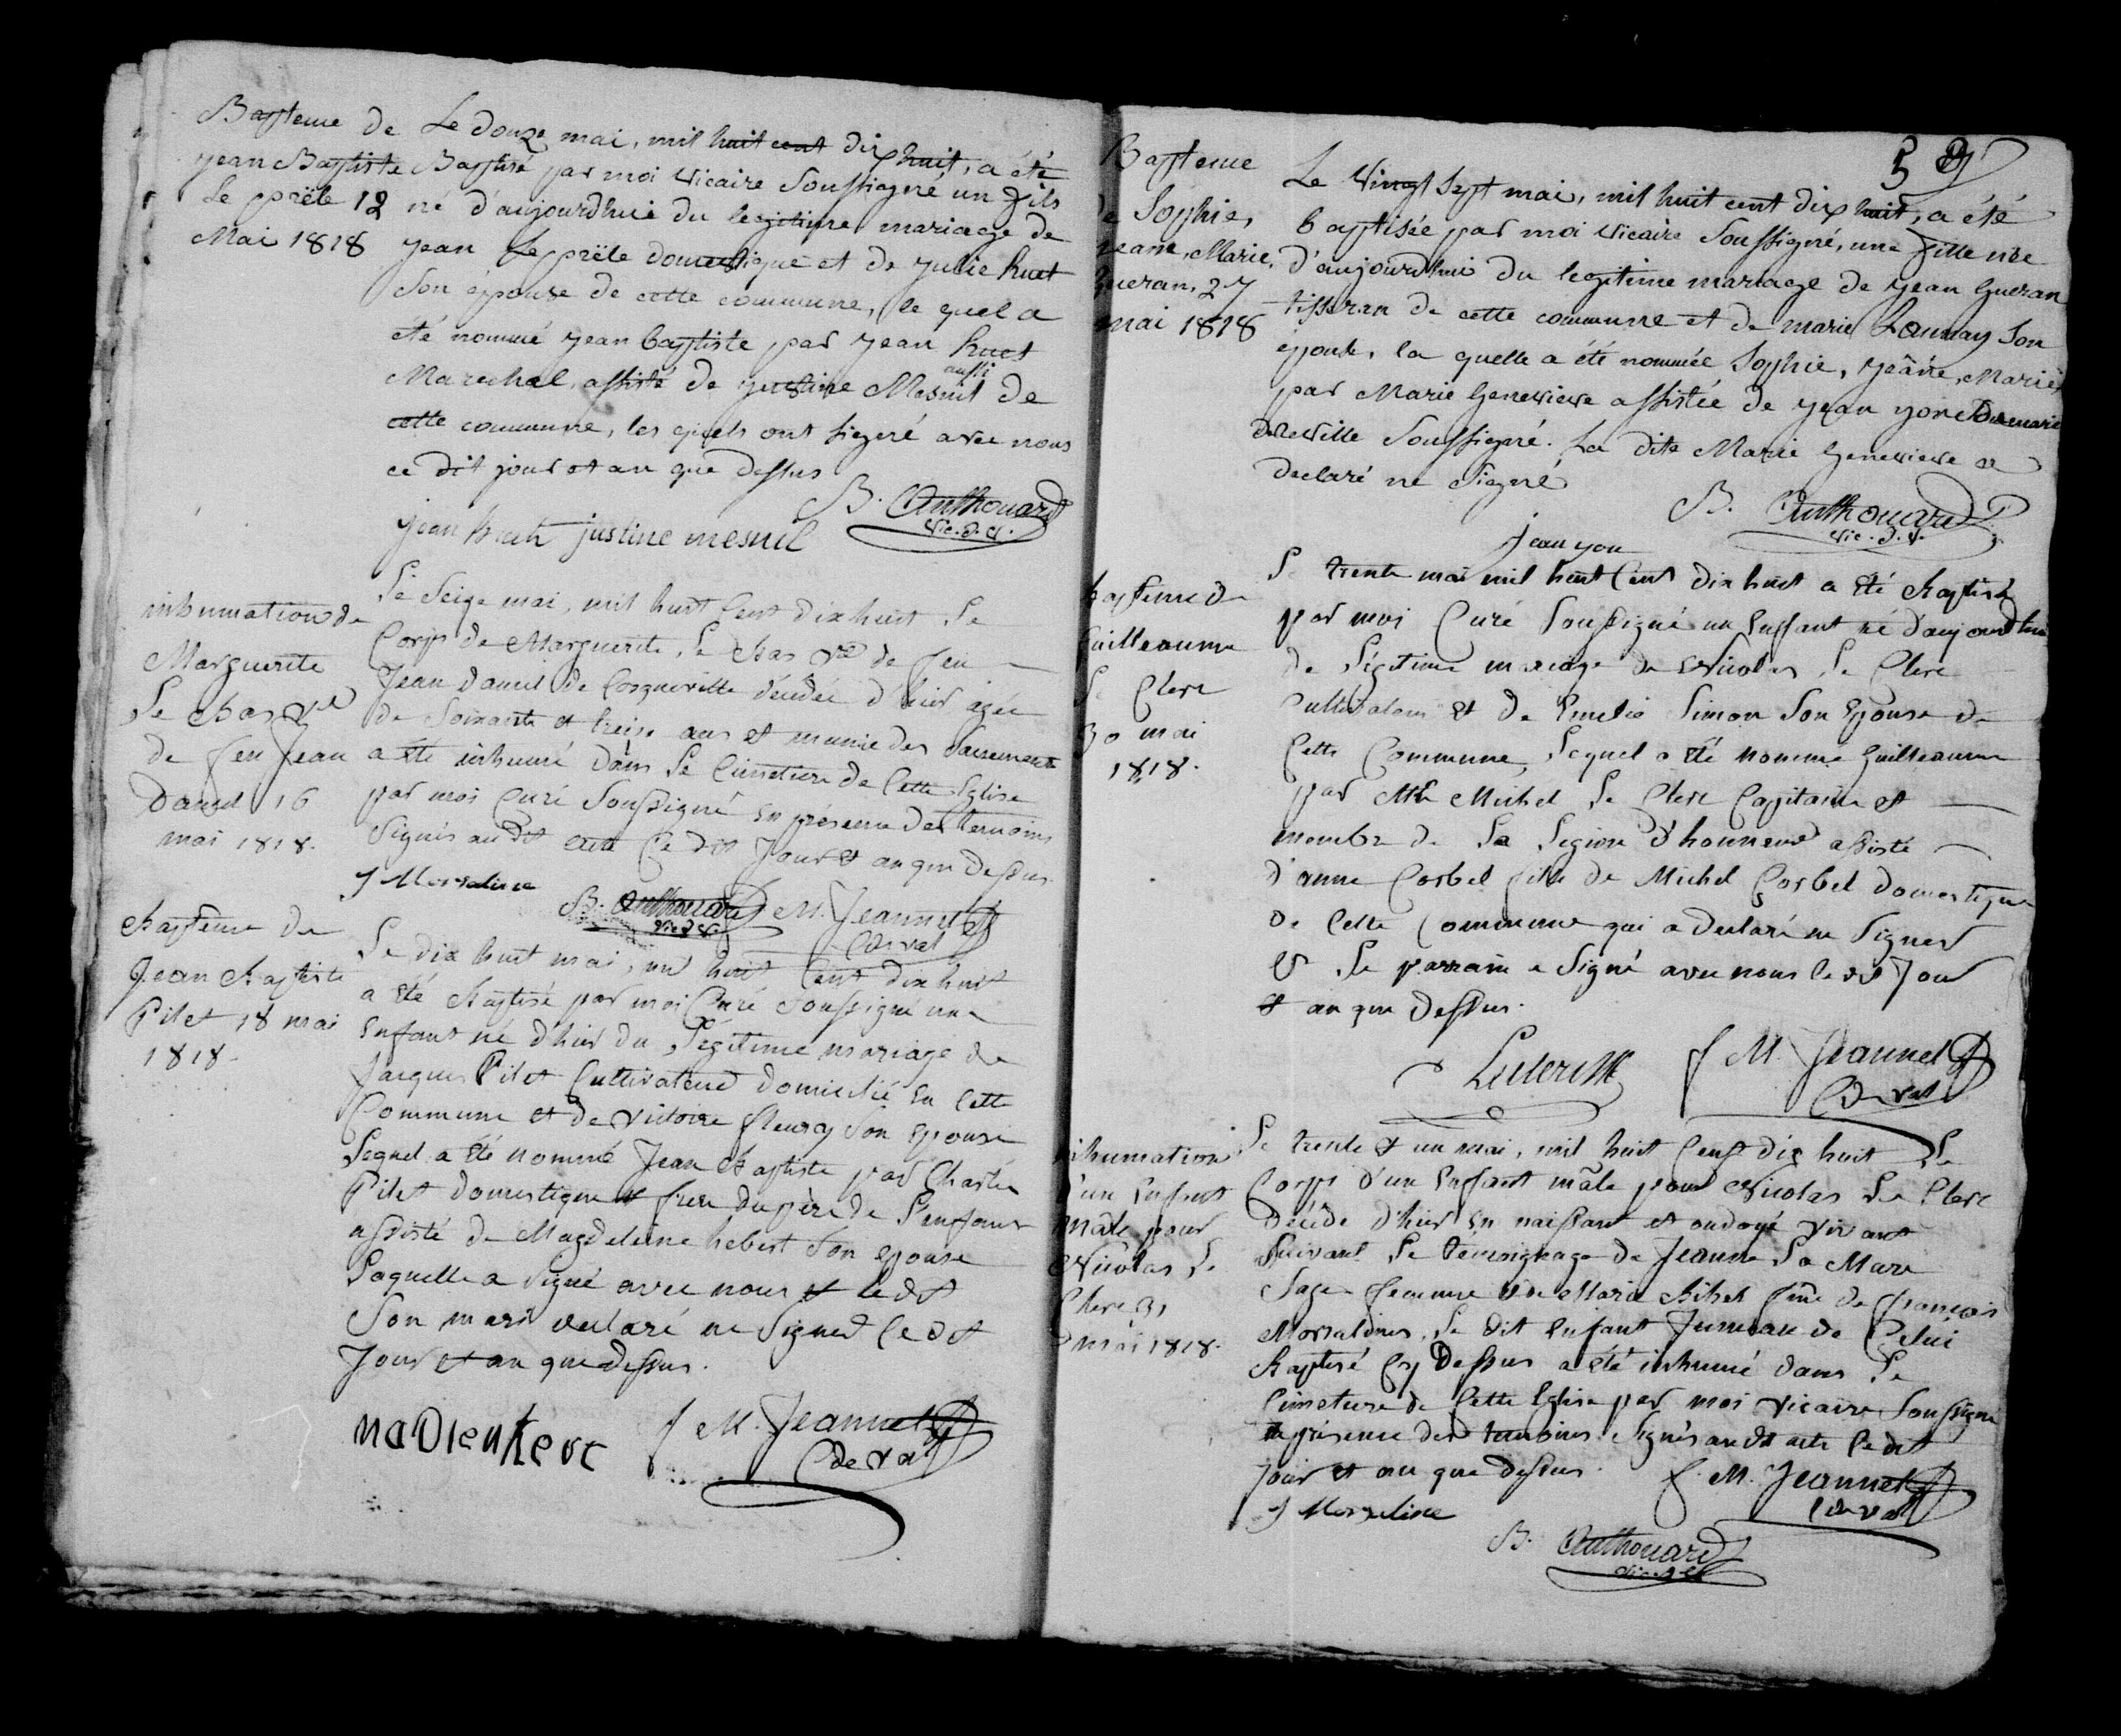 Bapteme de
jean Baptiste
Le prëte 12
Mai 1818
Le douze mai, mil huit cent dix huit, a été
Baptisé par moi vicaire soussigné un fils
né d'aujourdhui du legitime mariage de
jean Le prële domestique et de julie huet
son épouse de cette commune, le quel a
été nommé jean baptiste par jean huet
aussi
Marechal, assisté de justine Mesnil de
cette commune, les quels ont signé avec nous
ce dit jour et an que dessus
B. Anthouard
vic. d. v.
jean huet justine mesnil
inhumation de
Marguerite
Le Bas vve
de feu Jean
Daniel 16
mai 1818.
Le Seize mai, mil huit Cent dix huit Le
Corps de Marguerite Le Bas vve de feu
Jean Daniel de Cosqueville décédée d'hier agée
de Soixante et treize ans et munie des Sacremens
a été inhumé dans Le Cimetiere de Cette Eglise
par moi Curé Soussigné En présence des temoins
Signés au dit acte Ce dit Jour et an que dessus
J Morsaline
B. Anthouard M. Jeannet
vic d v. C de val
Bapteme de
Jean Baptiste
Pilet 18 mai
1818.
Le dix huit mai, mil huit Cent dix huit
a été Baptisé par moi Curé Soussigné un
Enfant né d'hier du Légitime mariage de
Jacques Pilet Cultivateur domicilié En Cette
Commune et de Victoire fleury Son Epouse
Lequel a été nommé Jean Baptiste par Charles
Pilet domestique et frere du père de L'enfant
assisté de Magdeleine hebert Son epouse
Laquelle a Signé avec nous et le dt
Son mari declaré ne Signer Ce dt
Jour et an que dessus.
f M. Jeannet
C de val
5
Bapteme
de Sophie,
jeane, Marie,
Gueran, 27
mai 1818
Le vingt sept mai, mil huit cent dix huit, a été
baptisée par moi vicaire soussigné, une fille née
d'aujourdhui du legitime mariage de jean Gueran
tisseran de cette commune et de marie Launay son
épouse, la quelle a été nommée Sophie, jeane, Marie,
par Marie Genevieve assistée de jean yon
soussigné. La dite Marie Genevieve a
declaré ne signé
B. Anthouard
vic. d. v.
jean yon
bapteme de
Guilleaume
Le Clerc
30 mai
1818.
Le trente mai mil huit Cent dix huit a été Baptisé
par moi Curé Soussigné un Enffant né d'aujourdhui
de Légitime mariage de Nicolas Le Clerc
Cultivateur et de Emelie Simon Son Epouse de
Cette Commune, Lequel a été nommé Guilleaume
par Mr Michel Le Clerc Capitaine et
membre de La Legion d'honneur assisté
d'anne Corbel fille de Michel Corbel domestique
de Cette Commune qui a declaré ne Signer
et Le parrain a Signé avec nous Ce dt Jour
et an que dessus.
Leclerc f M. Jeannet
C de val
inhumation
d'un Enfant
mâle pour
Nicolas Le
Clerc 31
mai 1818.
Le trente et un mai, mil huit Cent dix huit Le
Corps d'un Enffant mâle pour Nicolas Le Clerc
décédé d'hier En naissant et ondoyé vivant
Suivant Le témoignage de Jeanne La Mare
Sage femme et de Marie Bihel fme de françois
Morsalines, Le dit Enfant Jumeau de Celui
Baptisé Cy dessus a été inhumé dans Le
Cimetiere de Cette Eglise par moi vicaire Soussigné
En présence des temoins Signés au dt acte Ce dit
Jour et an que dessus. f. M. Jeannet
C de val
J Morsaline
B. Anthouard
vic. d v